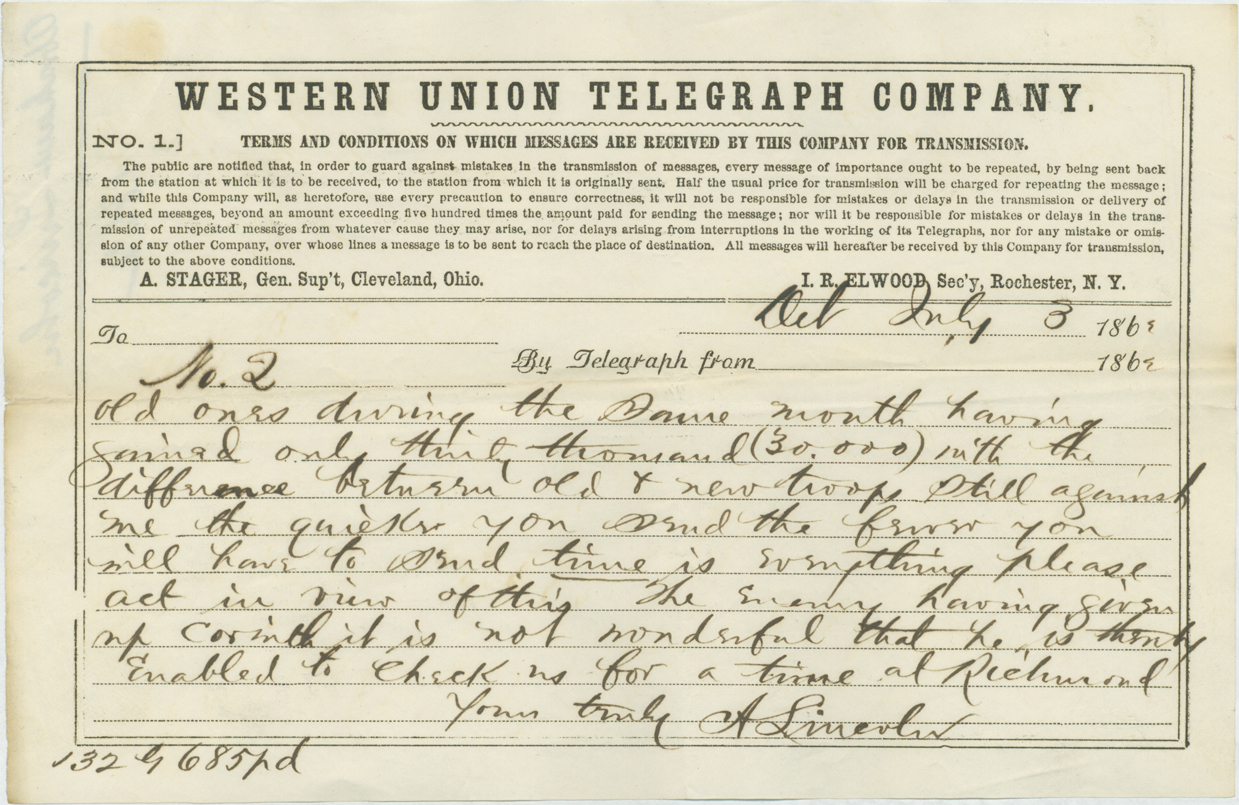 WESTERN UNION TELEGRAPH COMPANY.
NO. 1.]
TERMS AND CONDITIONS ON WHICH MESSAGES ARE RECEIVED BY THIS COMPANY FOR TRANSMISSION.
The public are notified that, in order to guard against mistakes in the transmission of messages, every message of importance ought to be repeated, by being sent back
from the station at which it is to be received, to the station from which it is originally sent. Half the usual price for transmission will be charged for repeating the message;
and while this Company will, as heretofore, use every precaution to ensure correctness, it will not be responsible for mistakes or delays in the transmission or delivery of
repeated messages, beyond an amount exceeding five hundred times the amount paid for sending the message; nor will it be responsible for mistakes or delays in the trans-
mission of unrepeated messages from whatever cause they may arise, nor for delays arising from interruptions in the working of its Telegraphs, nor for any mistake or omis-
sion of any other Company, over whose lines a message is to be sent to reach the place of destination. All messages will hereafter be received by this Company for transmission,
subject to the above conditions.
A. STAGER, Gen. Sup't, Cleveland, Ohio.
I. R. ELWOOD, Sec'y, Rochester, N. Y.
Det July 3 186
To
By Telegraph from 186
No. 2
old ones during the same month having
gained only thirty thousand (30.000) with the
difference between old & new troops still against
me the quicker you send the fewer you
will have to send time is everything please
act in view of this The Enemy having given
up Corinth it is not wonderful that he is thereby
Enabled to check us for a time at Richmond
Yours truly A Lincoln
132 G 685pd